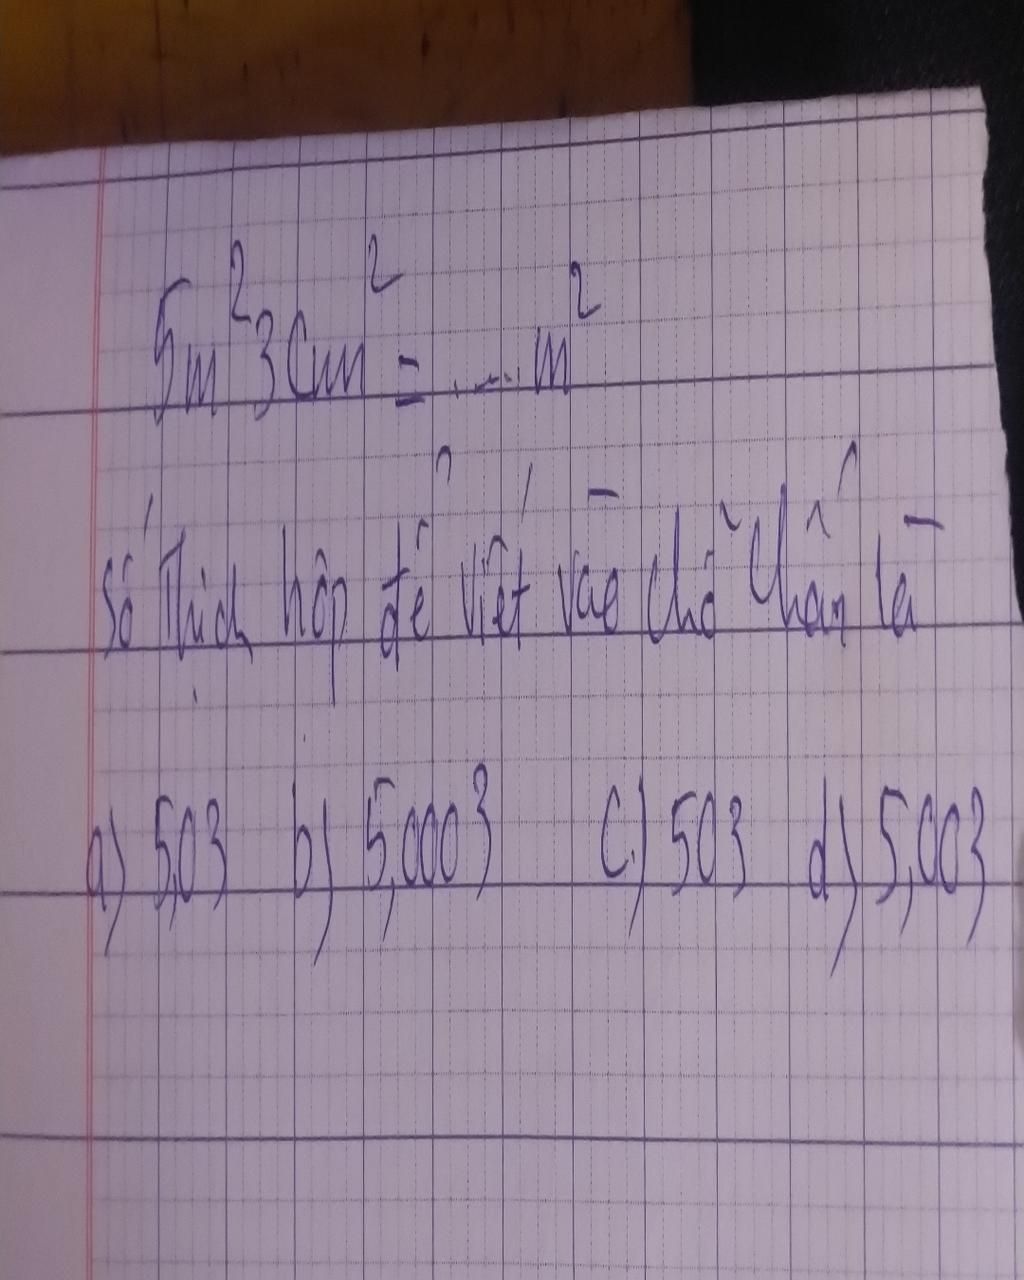 5m² 3cm² = ..... m²
Số thích hợp để viết vào chỗ chấn là
a) 5,03 b) 5,0003 c) 503 d) 5,003